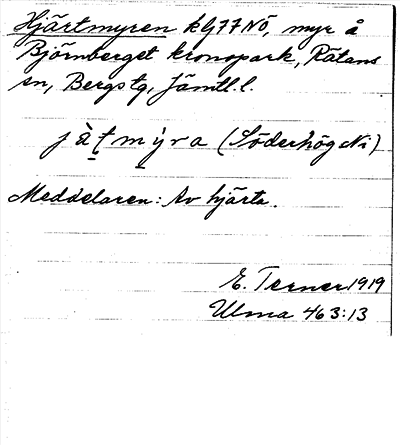 Hjärtmyren kG77NÖ, myr å
Björnberget kronopark, Rätans
sn, Bergs tg, Jämtl. l.
jä̀t̠mýra (Söderhög Ni)
Meddelaren: Av hjärta.
E. Terner 1919
Ulma 463:13